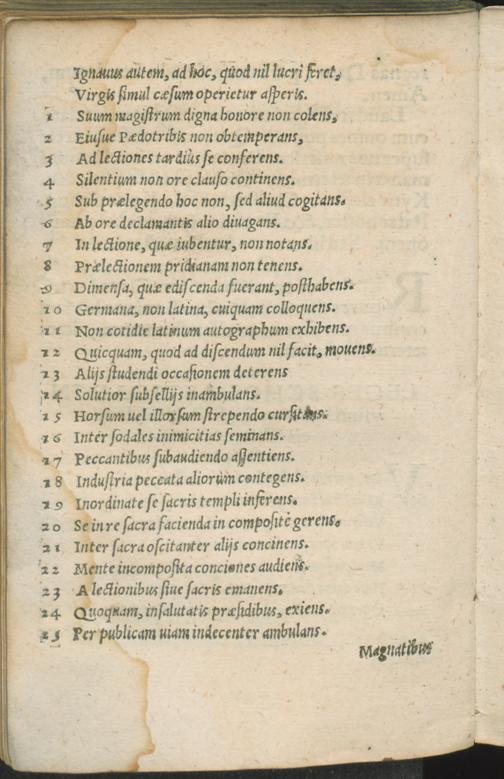 Ignauus autem, ad hoc, quod nil lucri feret,
Virgis simul cæsum operietur asperis.
1 Suum magistrum digna honore non colens,
2 Eiusue Pædotribis non obtemperans,
3 Ad lectiones tardius se conferens.
4 Silentium non ore clauso continens.
5 Sub prælegendo hoc non, sed aliud cogitans.
6 Ab ore declamantis alio diuagans.
7 In lectione, quæ iubentur, non notans.
8 Prælectionem pridianam non tenens.
9 Dimensa, quæ ediscenda fuerant, posthabens.
10 Germana, non latina, cuiquam colloquens.
11 Non cotidie latinum autographum exhibens.
12 Quicquam, quod ad discendum nil facit, mouens.
13 Alijs studendi occasionem deterens
14 Solutior subsellijs inambulans.
15 Horsum uel illorsum strependo cursitans.
16 Inter sodales inimicitias seminans.
17 Peccantibus subaudiendo assentiens.
18 Industria peccata aliorum contegens.
19 Inordinate se sacris templi inferens.
20 Se in re sacra facienda in compositè gerens.
21 Inter sacra oscitanter alijs concinens.
22 Mente incomposita conciones audiens.
23 A lectionibus siue sacris emanens.
24 Quoquam, insalutatis præsidibus, exiens.
25 Per publicam uiam indecenter ambulans.
Magnatibus